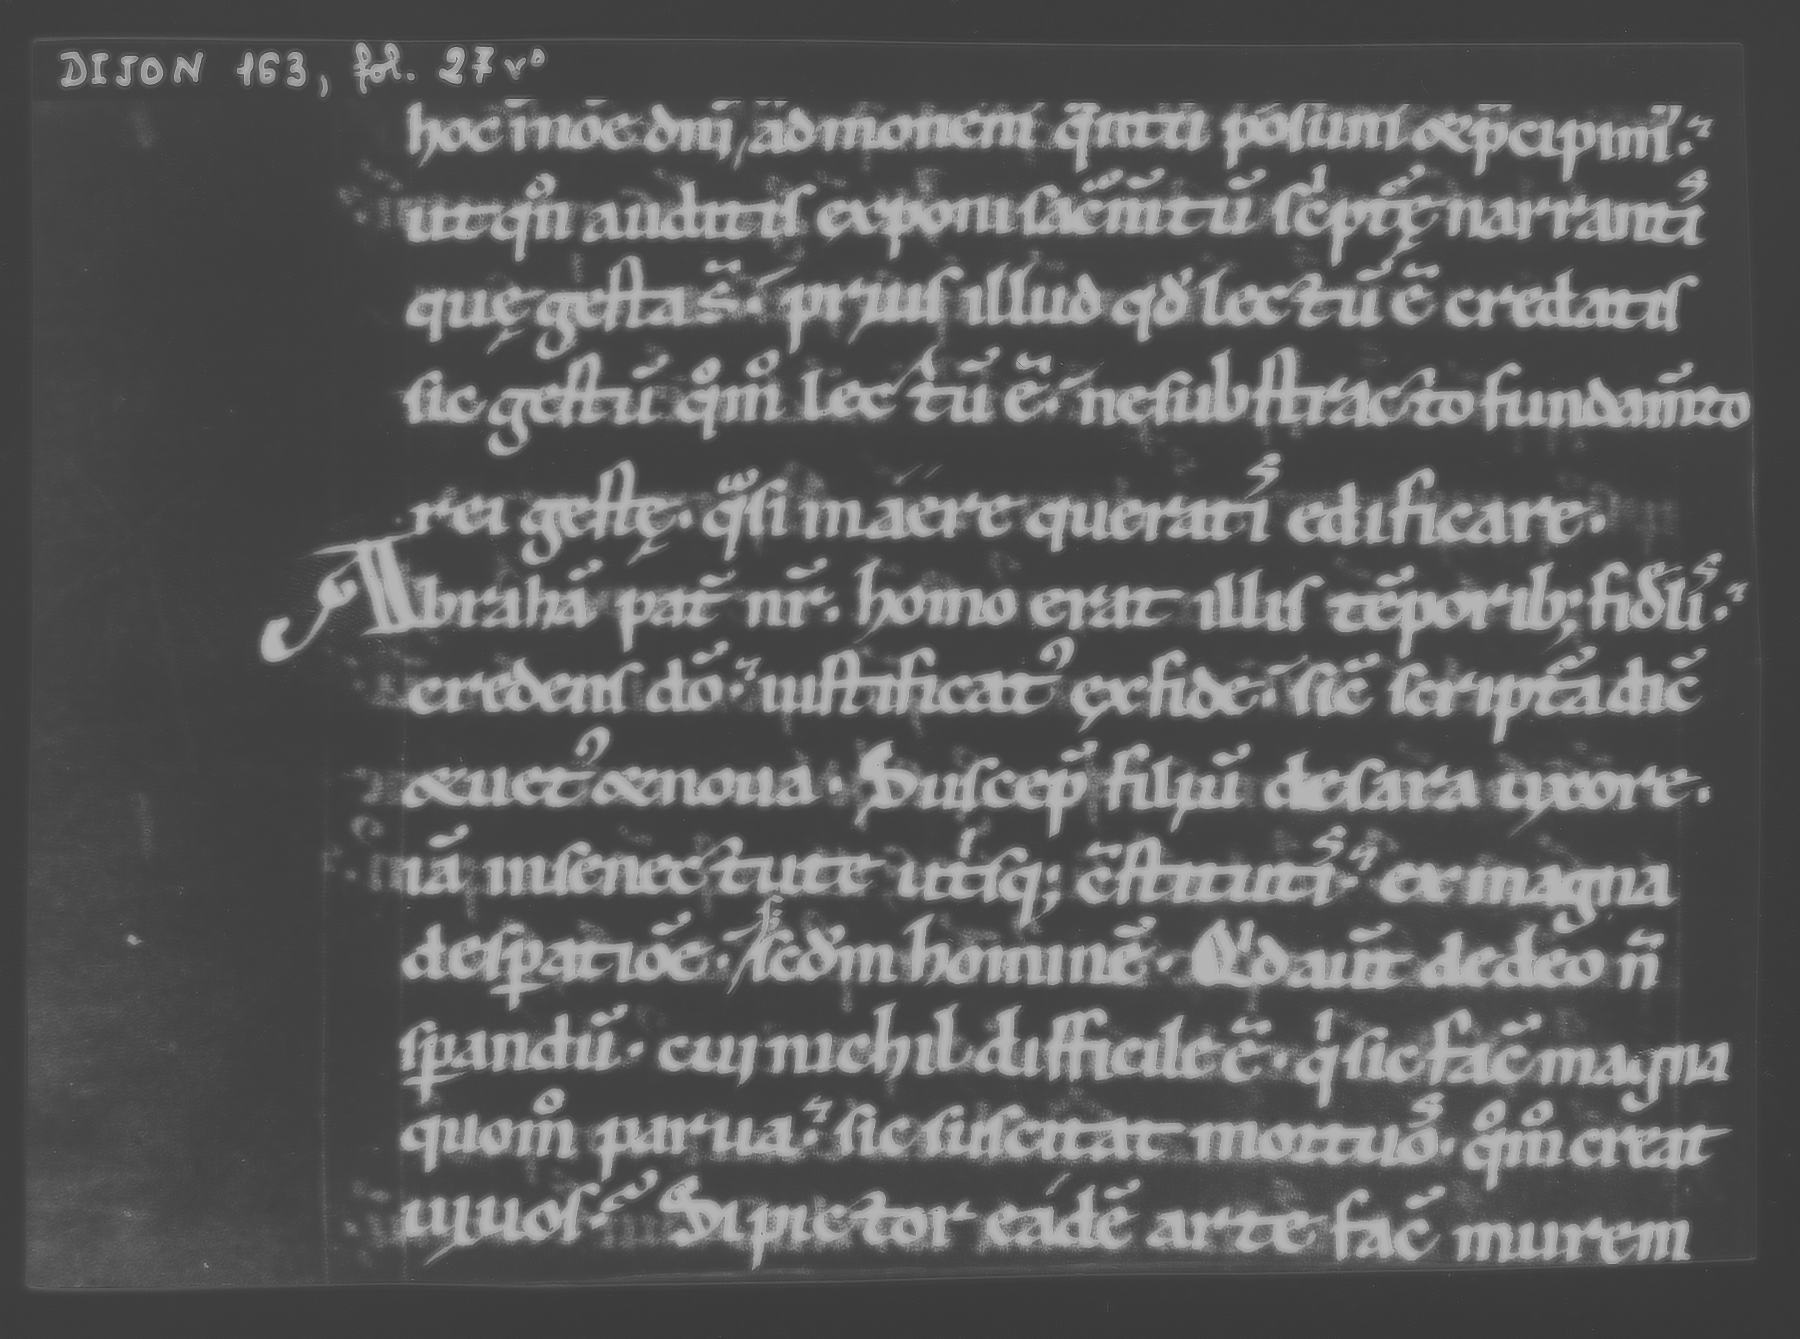 DIJON 163, fol. 27 vº
hoc ĩ nõe dnĩ, ãdmonem̃ q̃ntũ põsum̃ & p̃cipim᷒:
ut qn̊ auditis exponi sac̃m̃tũ sc̃pt̃ę narrantiˢ
quę gesta s̃. prius illud qđ lectũ ẽ credatis
sic gestũ qm̊̊ lectũ ẽ. ne substracto fundam̃to
rei gestę. qͣsi in aere queratiˢ edificare.
Abrahã pat̃ nr̃. homo erat illis tẽporib; fiđliˢ:
credens dõ: iustificat᷒ ex fide. sic̃ script̃a dic̃
& uet᷒ & noua. Suscep̃ filiũ de sara uxore.
iã in senectute utͥsq; c̃stitutiˢ: ex magna
desꝑatiõe. s; scđm hominẽ. Qͥd aut̃ de deo ñ
sꝑandũ. cui nichil difficile ẽ. qͥ sic fac̃ magna
quom̊ parua: sic suscitat mortuoˢ. qm̊̊ creat
uiuos. Si pictor eadẽ arte fac̃ murem